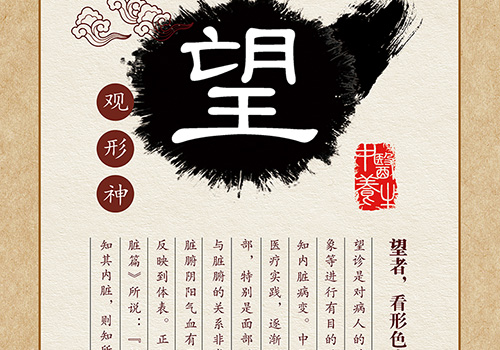 望
观形神
中醫
養生
望者，看形色
望诊是对病人的
象等进行有目的
知内脏病变。中
医疗实践，逐渐
部，特别是面部
与脏腑的关系非
脏腑阴阳气血有
反映到体表。正
脏篇》所说：『
知其内脏，则知所